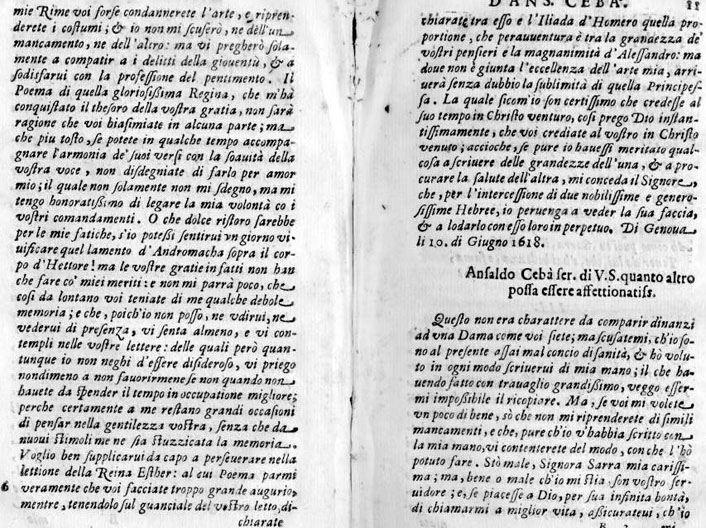 mie Rime voi forse condannerete l'arte, e ripren-
derete i costumi; & io non mi scuserò, ne dell'un
mancamento, ne dell'altro: ma vi pregherò sola-
mente a compatir a i delitti della gioventù, & a
sodisfarui con la professione del pentimento. Il
Poema di quella gloriosissima Regina, che m'hà
conquistato il thesoro della vostra gratia, non sarà
ragione che voi biasimiate in alcuna parte; ma
che piu tosto, se potete in qualche tempo accompa-
gnare l'armonia de' suoi versi con la soauità della
vostra voce, non disdegniate di farlo per amor
mio; il quale non solamente non mi sdegno, ma mi
tengo honoratissimo di legare la mia volontà co i
vostri comandamenti. O che dolce ristoro sarebbe
per le mie fatiche, s'io potessi sentirui vn giorno vi-
uificare quel lamento d'Andromacha sopra il cor-
po d'Hettore! ma le vostre gratie in fatti non han
che fare co' miei meriti: e non mi parrà poco, che
così da lontano voi teniate di me qualche debole
memoria; e che, poich'io non posso, ne vdirui, ne
vederui di presenza, vi senta almeno, e vi con-
templi nelle vostre lettere: delle quali però quan-
tunque io non neghi d'essere disideroso, vi priego
nondimeno a non fauorirmene se non quando non
hauete da spender il tempo in occupatione migliore;
perche certamente a me restano grandi occasioni
di pensar nella gentilezza vostra, senza che da
nuoui stimoli me ne sia stuzzicata la memoria.
Voglio ben supplicarui da capo a perseuerare nella
lettione della Reina Esther: al cui Poema parmi
6 veramente che voi facciate troppo grande augurio,
mentre, tenendolo sul guanciale del vostro letto, di-
chiarate
D'ANS. CEBÀ. 11
chiarate tra esso e l'Iliada d'Homero quella pro-
portione, che perauuentura è tra la grandezza de'
vostri pensieri e la magnanimità d'Alessandro: ma
doue non è giunta l'eccellenza dell'arte mia, arri-
uerà senza dubbio la sublimità di quella Principes-
sa. La quale sicom'io son certissimo che credesse al
suo tempo in Christo venturo, così prego Dio instan-
tissimamente, che voi crediate al vostro in Christo
venuto; accioche, se pure io hauessi meritato qual-
cosa a scriuere delle grandezze dell'una, & a pro-
curare la salute dell'altra, mi conceda il Signore,
che, per l'intercessione di due nobilissime e genero-
sissime Hebree, io peruenga a veder la sua faccia,
& a lodarlo con esso loro in perpetuo. Di Genoua
li 10. di Giugno 1618.
Ansaldo Cebà ser. di V.S. quanto altro
possa essere affettionatiss.
Questo non era charattere da comparir dinanzi
ad vna Dama come voi siete; ma scusatemi, ch'io so-
no al presente assai mal concio di sanità, & hò volu-
to in ogni modo scriuerui di mia mano; il che ha-
uendo fatto con trauaglio grandissimo, veggo esser-
mi impossibile il ricopiare. Ma, se voi mi volete
vn poco di bene, sò che non mi riprenderete di simili
mancamenti, e che, pure ch'io v'habbia scritto con
la mia mano, vi contenterete del modo, con che l'hò
potuto fare. Stò male, Signora Sarra mia carissi-
ma; ma, bene o male ch'io mi stia, son vostro ser-
uidore; e, se piacesse a Dio, per sua infinita bontà,
di chiamarmi a miglior vita, assicurateui, ch'io